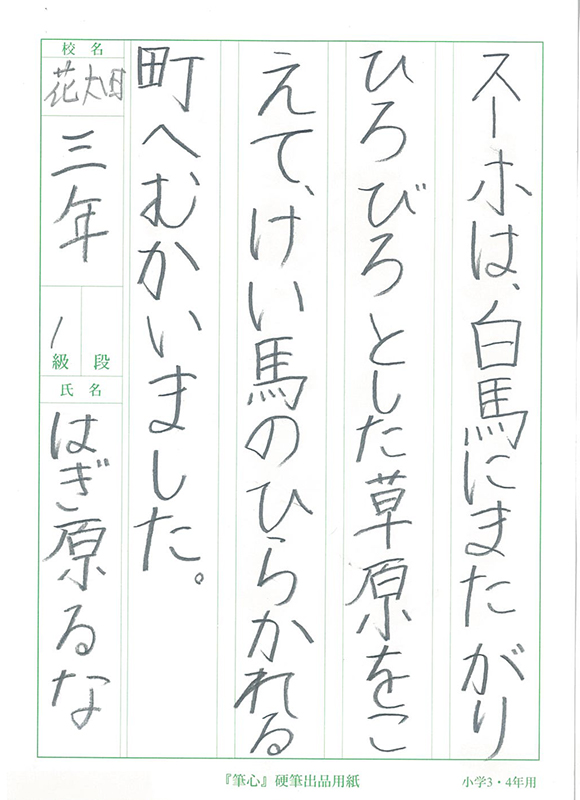 スーホは、白馬にまたがり
ひろびろとした草原をこ
えて、けい馬のひらかれる
町へむかいました。
校名
花畑
三年
1
級 段
氏名
はぎ原るな
『筆心』硬筆出品用紙
小学3・4年用